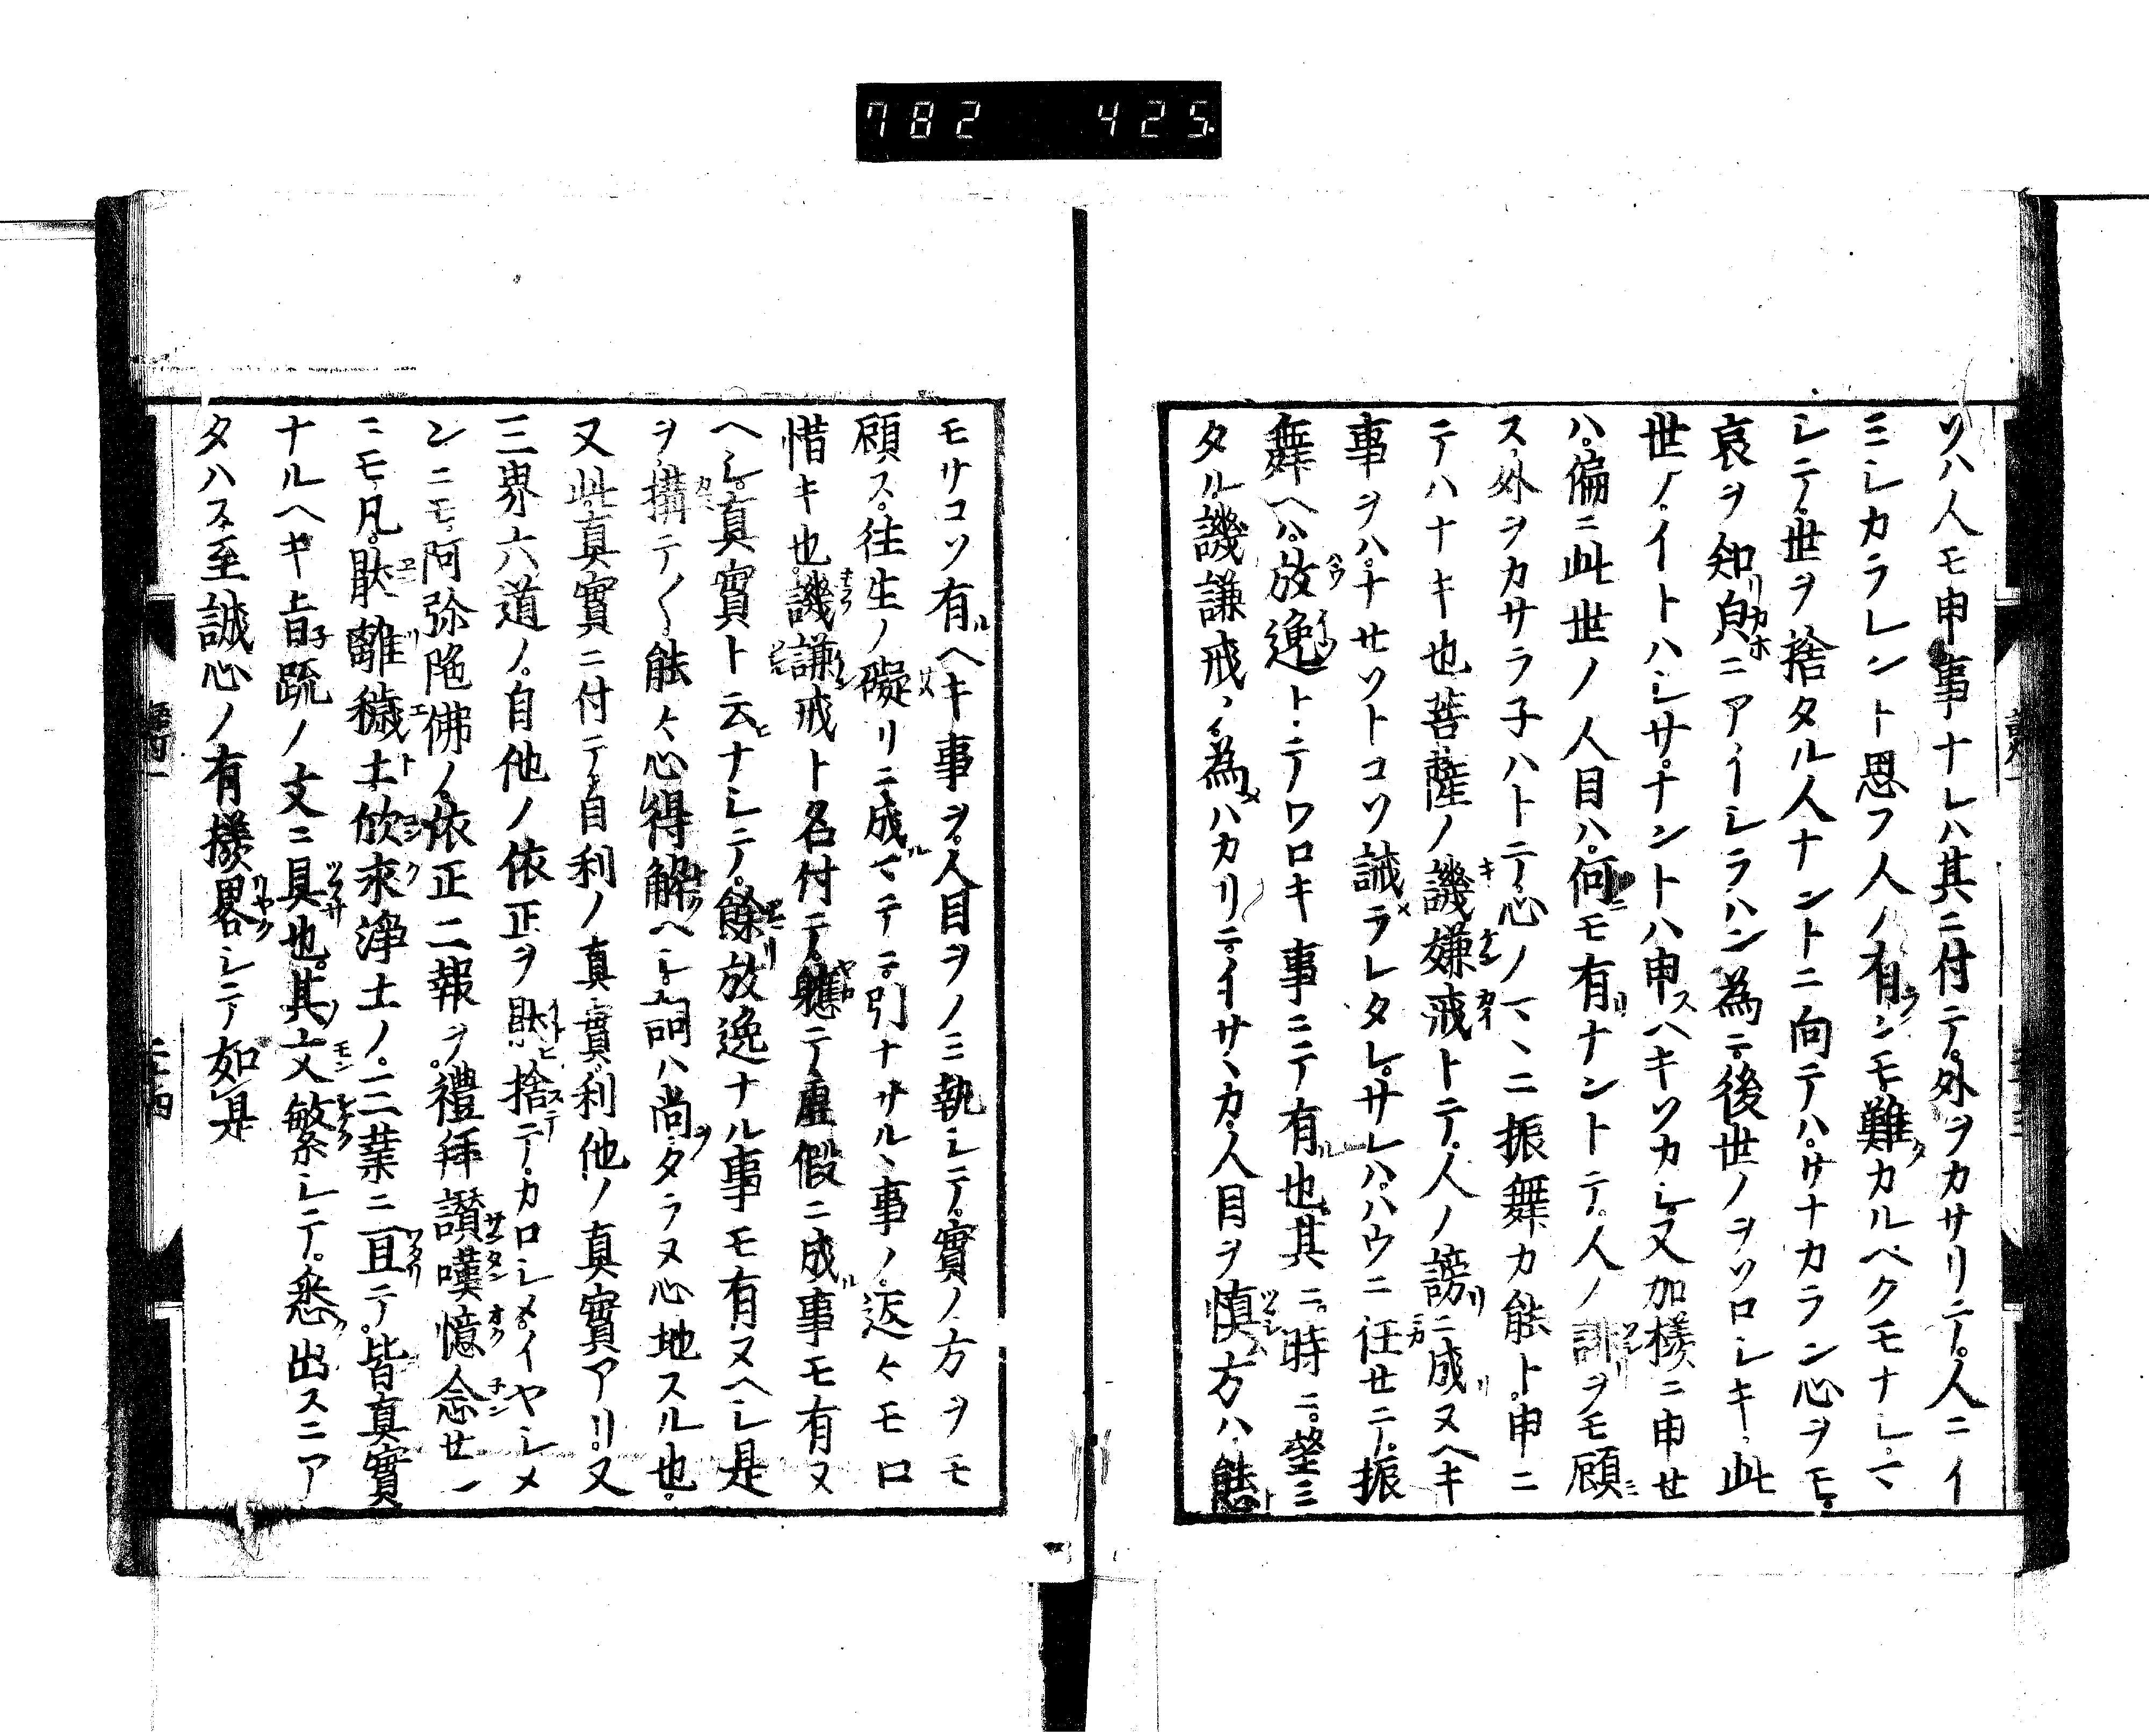 782 425
ソハ人モ申事ナレハ其ニ付テ。外ヲカサリテ。人ニイ
ミシカラレント思フ人ノ有ンモ難カルベクモナシ。マ
シテ。世ヲ捨タル人ナントニ向テハ。サナカラン心ヲモ。
哀ヲ知㒵ニアイシラハン為ニ後世ノヲソロシキ。此
世ノイトハシサ。ナントハ申ヘキソカシ。又加樣ニ申セ
ハ。偏ニ此世ノ人目ハ。何モ有ナントテ。人ノ誹ヲモ顧
ス。外ヲカサラ子ハトテ心ノマヽニ振舞カ能ト。申ニ
テハナキ也菩薩ノ譏嫌戒トテ。人ノ謗ニ成ヌヘキ
事ヲハ。ナセソトコソ誡ラレタレ。サレハ。ハウニ任セテ。振
舞ヘハ。放逸トテワロキ事ニテ有也。其ニ。時ニ。望ミ
タル。譏謙戒ノ為ハカリニイサヽカ。人目ヲ愼方ハ。能
モサコソ有ヘキ事ヲ。人目ヲノミ執シテ。實ノ方ヲモ
顧ス。往生ノ礙リニ成マテニ引ナサルヽ事ノ。返々モ口
惜キ也。譏謙戒ト名付テ。軈テ虛假ニ成事モ有ヌ
ヘシ。真實ト云ナシテ。餘放逸ナル事モ有ヌヘシ是
ヲ構テ〱能々心得解ヘシ詞ハ尚タラヌ心地スル也。
又此真實ニ付テ自利ノ真實利他ノ真實アリ。又
三界六道ノ。自他ノ依正ヲ猒捨テ。カロシメイヤシメ
ンニモ。阿弥陀佛ノ。依正二報ヲ。禮拜讃嘆憶念セン
ニモ。凡。猒離穢土欣求淨土ノ。三業ニ亘テ。皆真實
ナルヘキ旨䟽ノ文ニ具也。其文繁シテ。悉出スニア
タハス。至誠心ノ有樣畧シテ如是